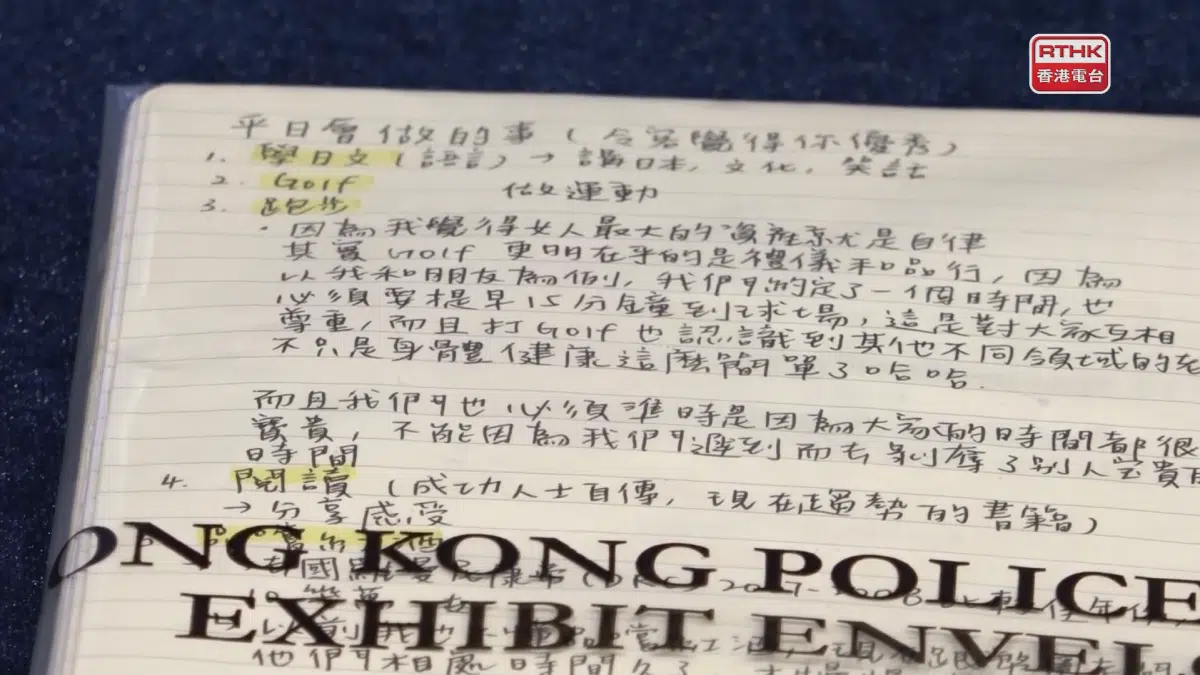 RTHK
香港電台
平日會做的事（令客覺得你優秀）
1. 學日文（語言）→ 講日本，文化，笑話
2. Golf 做運動
3. 跑步
・因為我覺得女人最大的資產就是自律
其實 Golf 更明在乎的是禮儀和品行，因為
以我和朋友為例，我們約定了一個時間，也
必須要提早15分鐘到球場，這是對大家互相
尊重，而且打Golf也認識到其他不同領域的
不只是身體健康這麼簡單了哈哈．
而且我們也必須準時是因為大家的時間都很
寶貴，不能因為我們遲到而去剝奪了別人寶貴
時間
4. 閱讀（成功人士自傳，現在趨勢的書籍）
→ 分享感受
ONG KONG POLICE
EXHIBIT ENVEL
他們相處時間久了